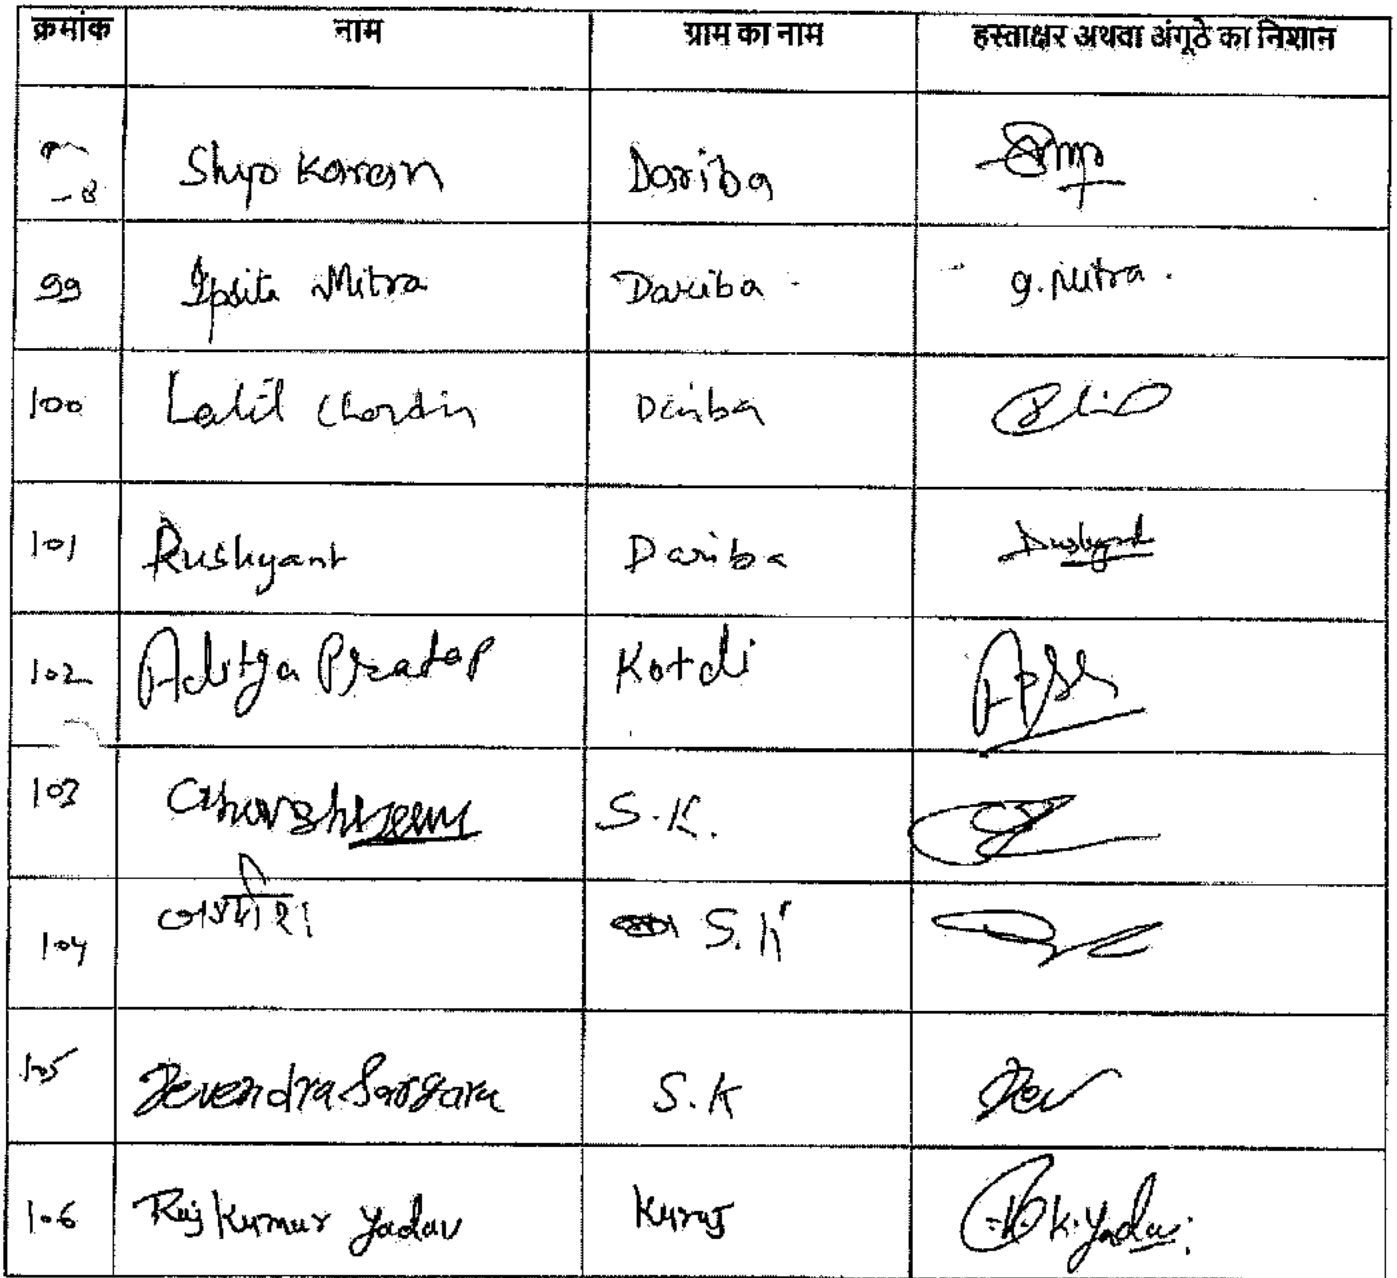 क्रमांक नाम ग्राम का नाम हस्ताक्षर अथवा अंगूठे का निशान
Shyo Karan Dariba
99 Ipsita Mitra Dariba I. Mitra.
100 Lalit Dariba
101 Dushyant Dariba Dushyant
102 Aditya Pratap Kotdi
103 S.K.
104 S.K
105 Devendra Sargara S.K Dev
106 Raj Kumar Yadav Kuraj K. Yadav